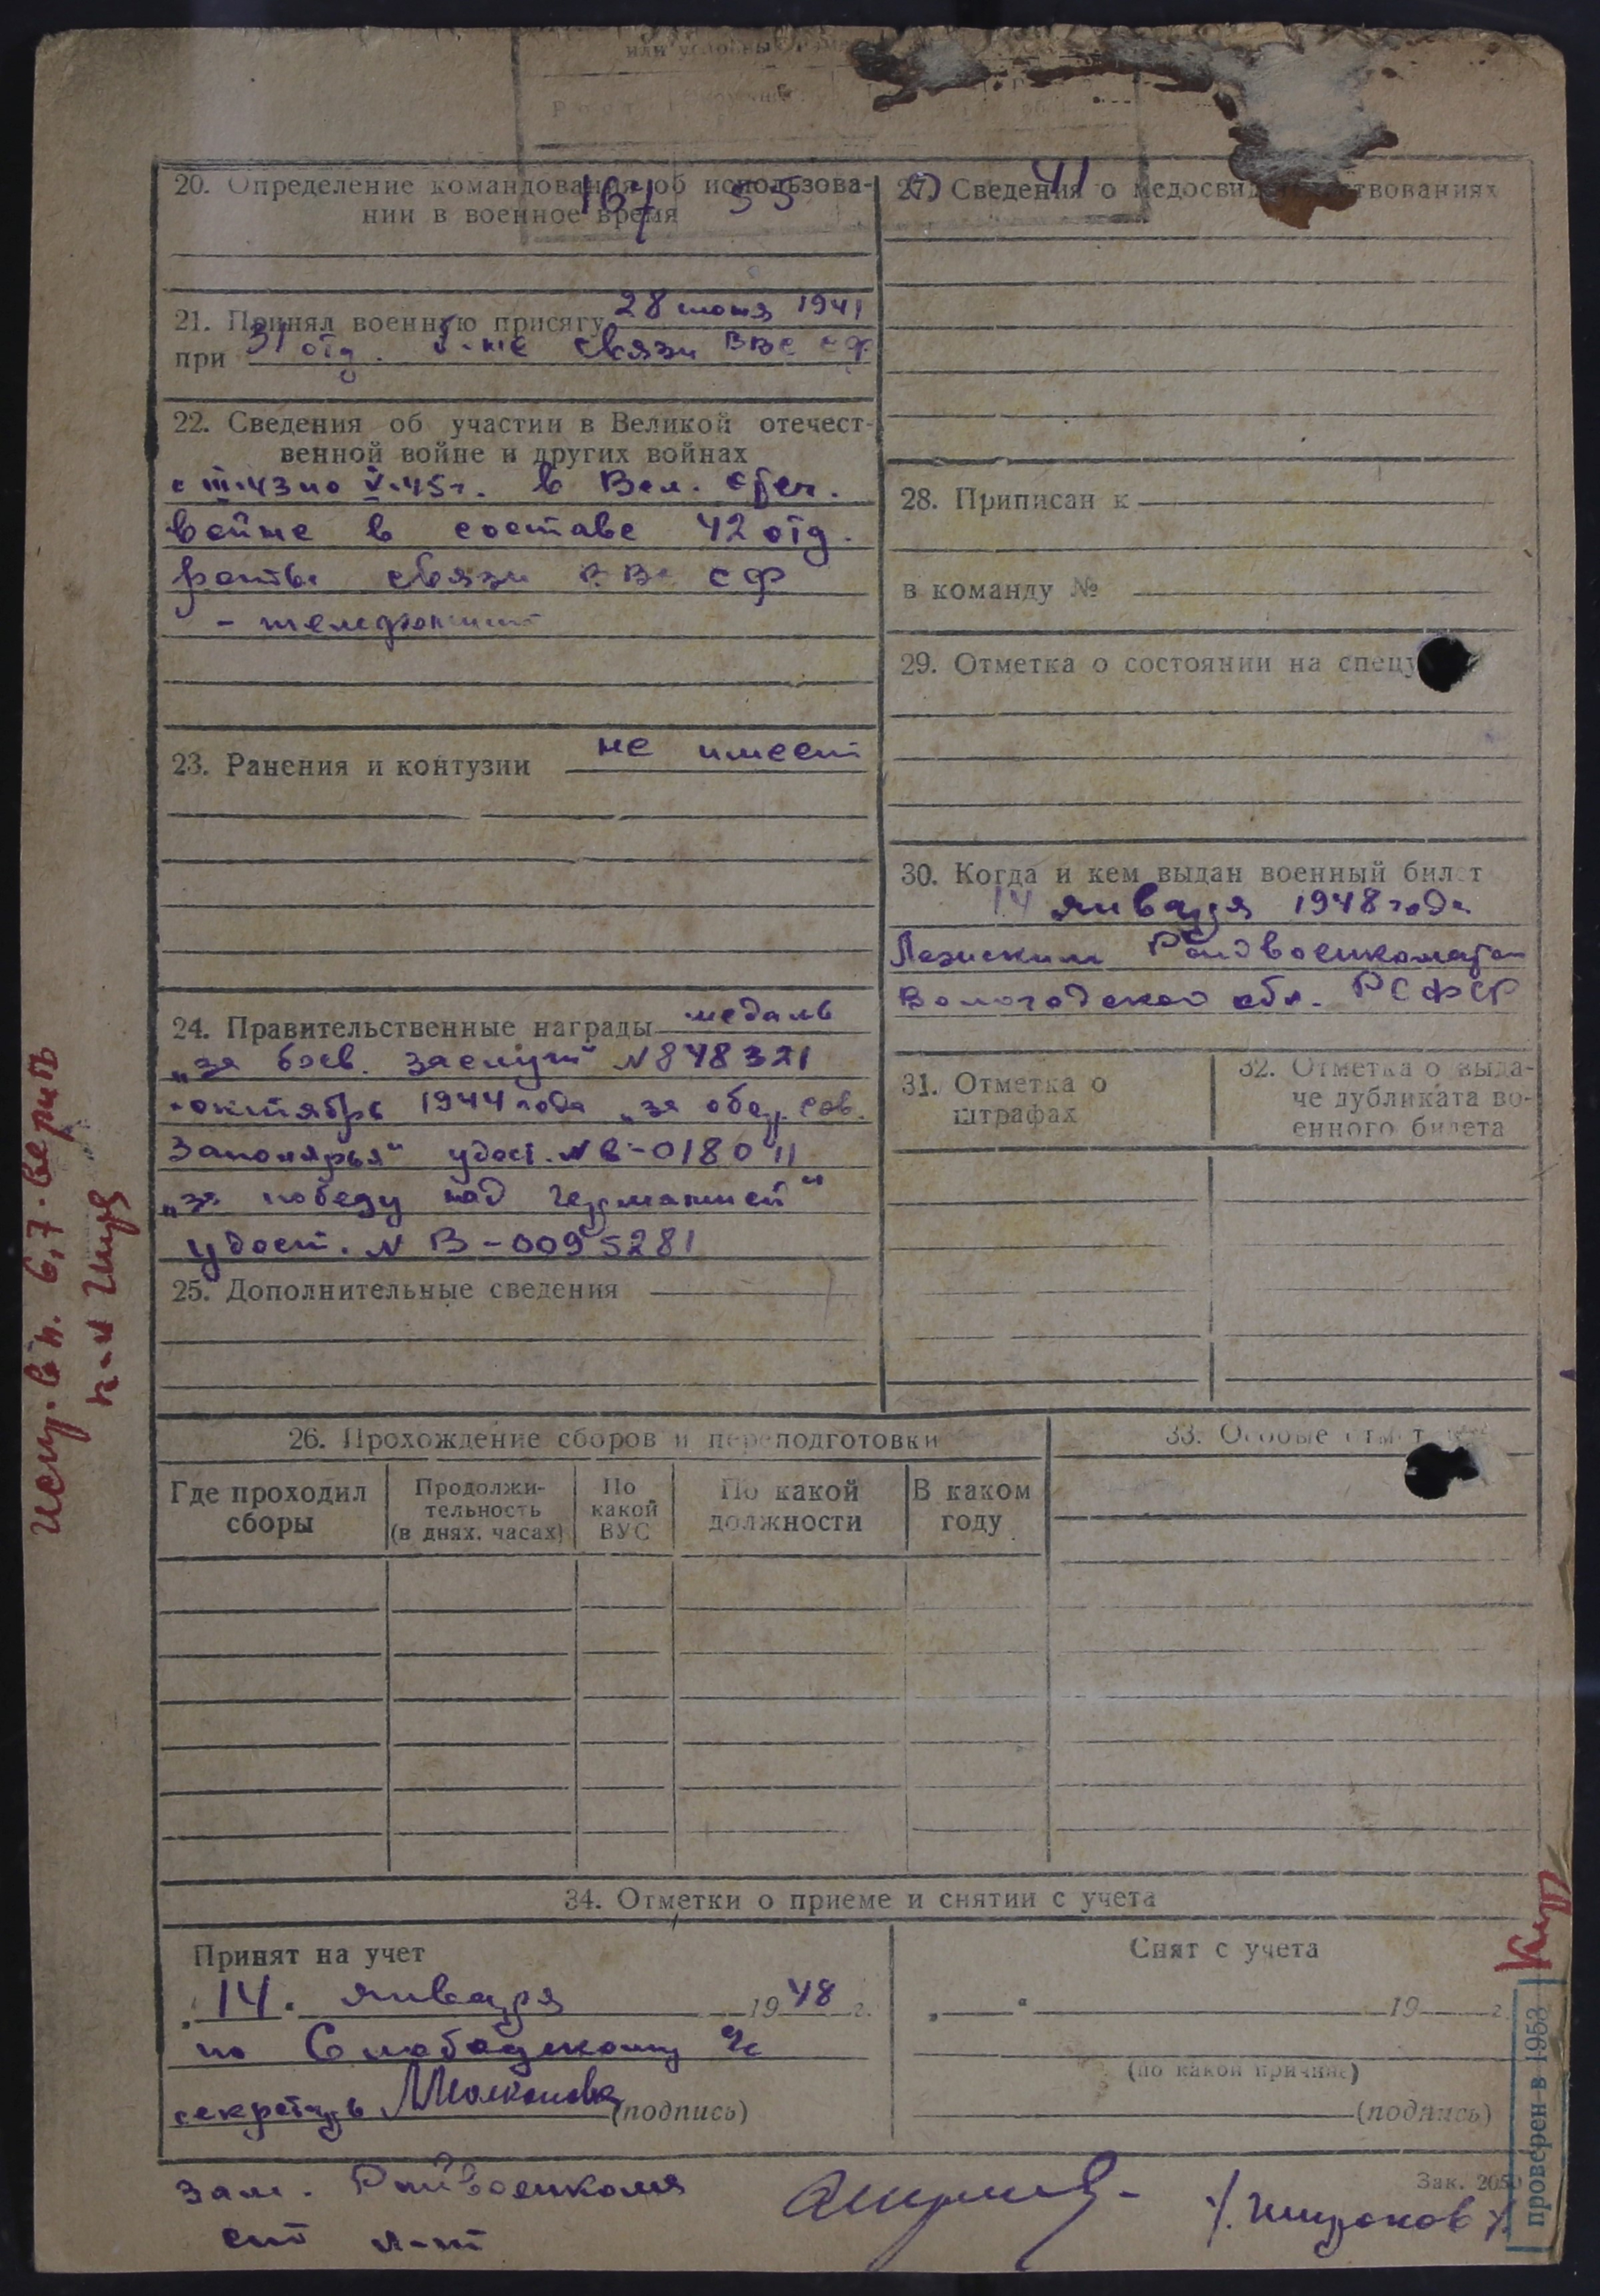 или условны
20. Определение командования об использова-
нии в военное время
167 55
21. Принял военную присягу 28 июня 1941
при 31 отд. б-не связи ВВС СФ
22. Сведения об участии в Великой отечест-
венной войне и других войнах
с III.43 по V.45г. в Вел. Отеч.
войне в составе 42 отд.
роты связи ВВС СФ
- телефонист
23. Ранения и контузии не имеет
24. Правительственные награды медаль
„за боев. заслуги" N 848321
октябрь 1944 года „за обор. Сов.
Заполярья" удост. N В-018011
„за победу над Германией"
удост. N В-0095281
25. Дополнительные сведения
27. Сведения о медосвидетельствованиях
41
28. Приписан к
в команду №
29. Отметка о состоянии на спецу
30. Когда и кем выдан военный билет
14 января 1948 года
Лежским Райвоенкоматом
Вологодской обл. РСФСР
31. Отметка о
штрафах
32. Отметка о выда-
че дубликата во-
енного билета
26. Прохождение сборов и переподготовки
Где проходил
сборы
Продолжи-
тельность
(в днях, часах)
По
какой
ВУС
По какой
должности
В каком
году
33. Особые отмет
34. Отметки о приеме и снятии с учета
Принят на учет
„14" января 1948 г.
по Слободскому с/с
секретарь (подпись)
Снят с учета
„ " 19 г.
(по какой причине)
(подпись)
Зам. Райвоенкома
ст л-т
/Широков/
Зак. 205
проверен в 1953
испр. в п. 6,7. верить